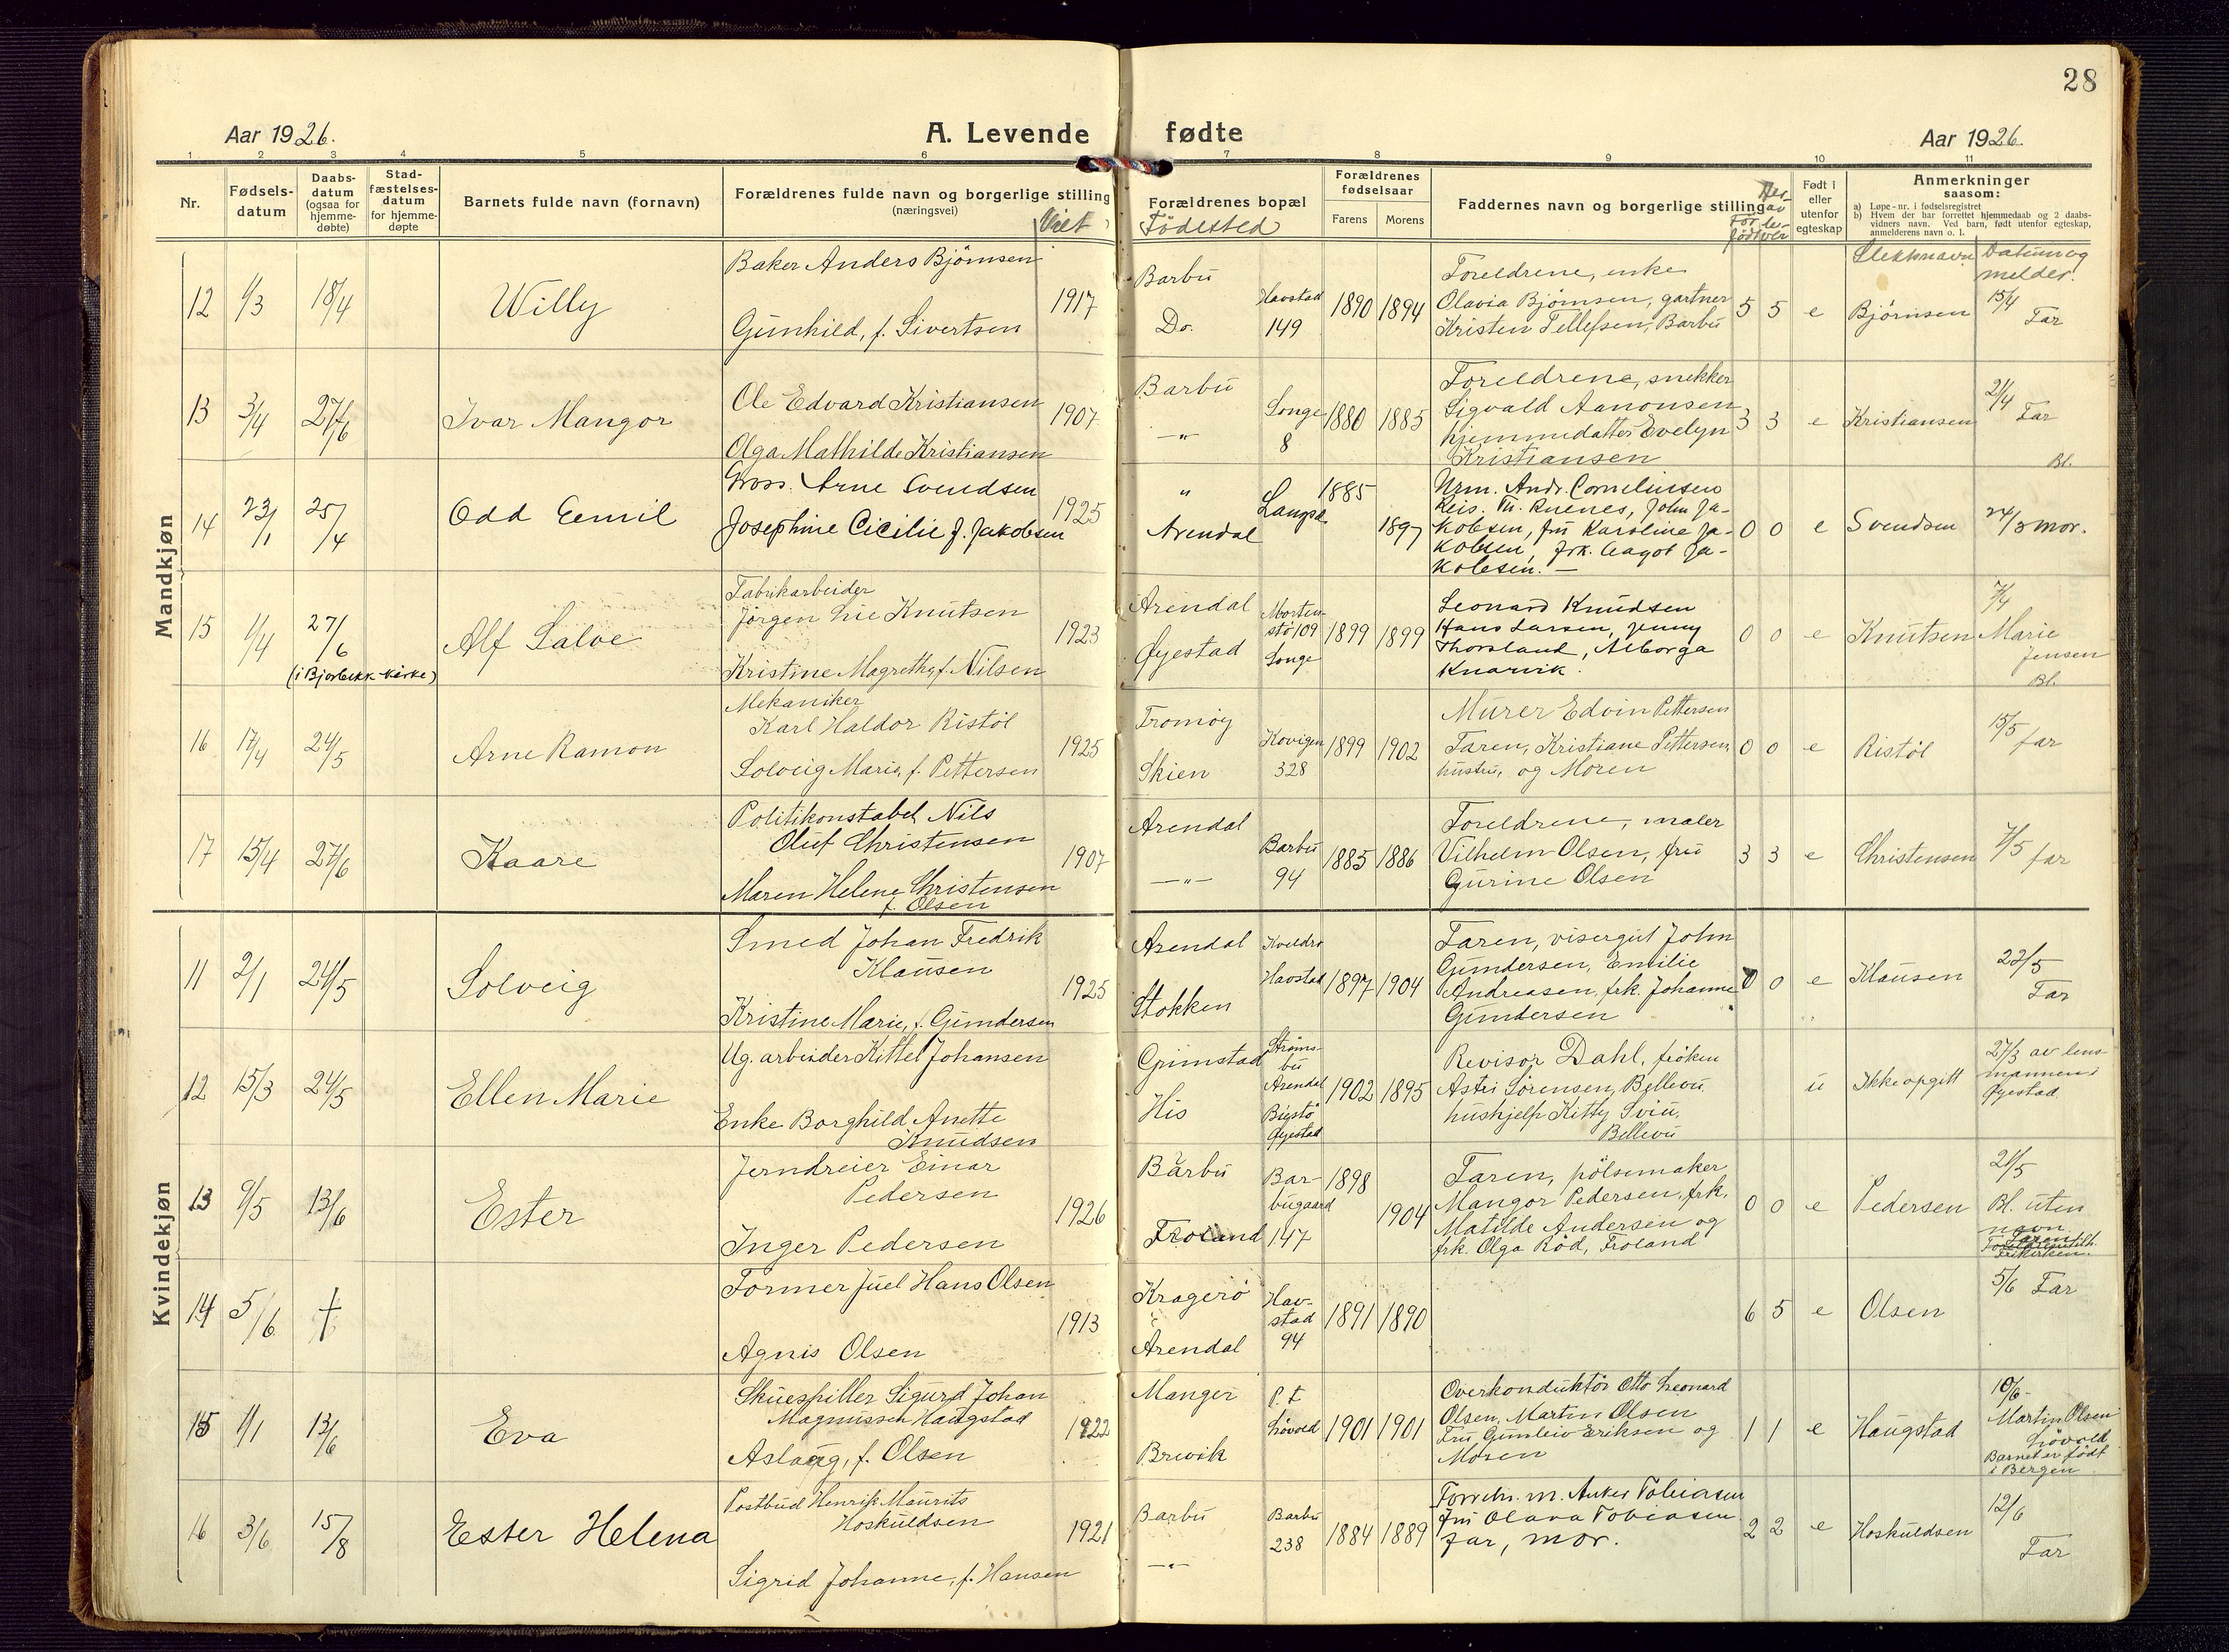 28
Aar 1926.
A. Levende fødte
Aar 1926.
1 2 3 4 5 6 7 8 9 10 11
Nr.
Fødsels-
datum
Daabs-
datum
(ogsaa for
hjemme-
døbte)
Stad-
fæstelses-
datum
for hjemme-
døpte
Barnets fulde navn (fornavn)
Forældrenes fulde navn og borgerlige stilling
(næringsvei)
Viet
Forældrenes bopæl
Födested
Forældrenes
fødselsaar
Farens Morens
Faddernes navn og borgerlige stilling
Født i
eller
utenfor
egteskap
Anmerkninger
saasom:
a) Løpe-nr. i fødselsregistret
b) Hvem der har forrettet hjemmedaab og 2 daabs-
vidners navn. Ved barn, født utenfor egteskap,
anmelderens navn o. l.
Slektsnavn
Datum og
melder.
Mandkjøn
12 1/3 18/4 Willy
Baker Anders Bjørnsen
Gunhild, f. Sivertsen
1917
Barbu
Do.
Havstad
149
1890 1894
Foreldrene, enke
Olavia Bjørnsen, gartner
Kristen Tellefsen, Barbu
5 5 e Bjørnsen
15/4
Far
13 3/4 27/6 Ivar Mangor
Ole Edvard Kristiansen
Olga Mathilde Kristiansen
1907
Barbu
—"—
Songe
8
1880 1885
Foreldrene, snekker
Sigvald Aanonsen
hjemmedatter Evelyn
Kristiansen
3 3 e Kristiansen
21/4
Far
Bl.
14 23/1 25/4 Odd Eemil
Gross. Arne Svendsen
Josephine Cicilie f. Jakobsen
1925
"
Arendal
Langsæ
1885
1897
Urm. Andr. Corneliusen
Reis. Th. Ruenes, John Ja-
kobsen, fru Karoline Ja-
kobsen, frk. Aagot Ja-
kobsen. —
0 0 e Svendsen
24/3 mor.
15 1/4 27/6
(i Bjorbekk kirke)
Alf Salve
Fabrikarbeider
Jörgen Lie Knutsen
Kristine Magrethe, f. Nilsen
1923
Arendal
Øyestad
Morten-
stö 109
Songe
1899 1899
Leonard Knudsen
Hans Larsen, Jenny
Thorsland, Alborga
Knarvik.
0 0 e Knutsen
7/4
Marie
Jensen
Bl.
16 17/4 24/5 Arne Ramon
Mekaniker
Karl Haldor Ristöl
Solveig Marie, f. Pettersen
1925
Tromöy
Skien
Kovigen
328
1899 1902
Murer Edvin Pettersen
Faren, Kristiane Pettersen,
hustru, og Moren
0 0 e Ristöl
15/5
far
17 15/4 27/6 Kaare
Politikonstabel Nils
Oluf Christensen
Maren Helene Christensen
f. Olsen
1907
Arendal
—"—
Barbu
94
1885 1886
Foreldrene, maler
Vilhelm Olsen, fru
Gurine Olsen
3 3 e Christensen
7/5 far
Kvindekjøn
11 2/1 24/5 Solveig
Smed Johan Fredrik
Klausen
Kristine Marie, f. Gundersen
1925
Arendal
Stokken
Havstad
1897 1904
Faren, visergut John
Gundersen, Emilie
Andreasen, frk. Johanne
Gundersen
0 0 e Klausen
22/5
Far
12 15/3 24/5 Ellen Marie
Ug. arbeider Kittel Johansen
Enke Borghild Anette
Knudsen
Grimstad
His
Ströms-
bu
Arendal
Biestö
Øyestad
1902 1895
Revisor Dahl, fröken
Astri Sörensen, Bellevu.
hushjelp Kitty Sviu,
Bellevu
u Ikke opgitt
27/3 av lens-
mannen i
Øyestad.
13 9/5 13/6 Ester
Jerndreier Einar
Pedersen
Inger Pedersen
1926
Barbu
Froland
Bar-
bugaard
147
1898
1904
Faren, pölsemaker
Mangor Pedersen, frk.
Matilde Andersen og
frk. Olga Röd, Froland
0 0 e Pedersen
21/5
Bl. uten
navn
14 5/6 †
Former Juel Hans Olsen
Agnis Olsen
1913
Kragerö
Arendal
Hav-
stad
94
1891 1890
6 5 e Olsen
5/6 Far
15 1/1 13/6 Eva
Skuespiller Sigurd Johan
Magnussen Haugstad
Aslaug, f. Olsen
1922
Manger
Brevik
P.t.
Lövold
1901 1901
Overkonduktör Otto Leonard
Olsen, Martin Olsen
Fru Gunleiv Eriksen og
Moren
1 1 e Haugstad
10/6-
Martin Olsen
Lövold
Barnet er födt
i Bergen
16 3/6 15/8 Ester Helena
Postbud Henrik Maurits
Hoskuldsen
Sigrid Johanne, f. Hansen
1921
Barbu
—"—
Barbu
238
1884 1889
Forretn. m. Anker Tobiasen
fru Olava Tobiasen
far, mor.
2 2 e Hoskuldsen
12/6
Far